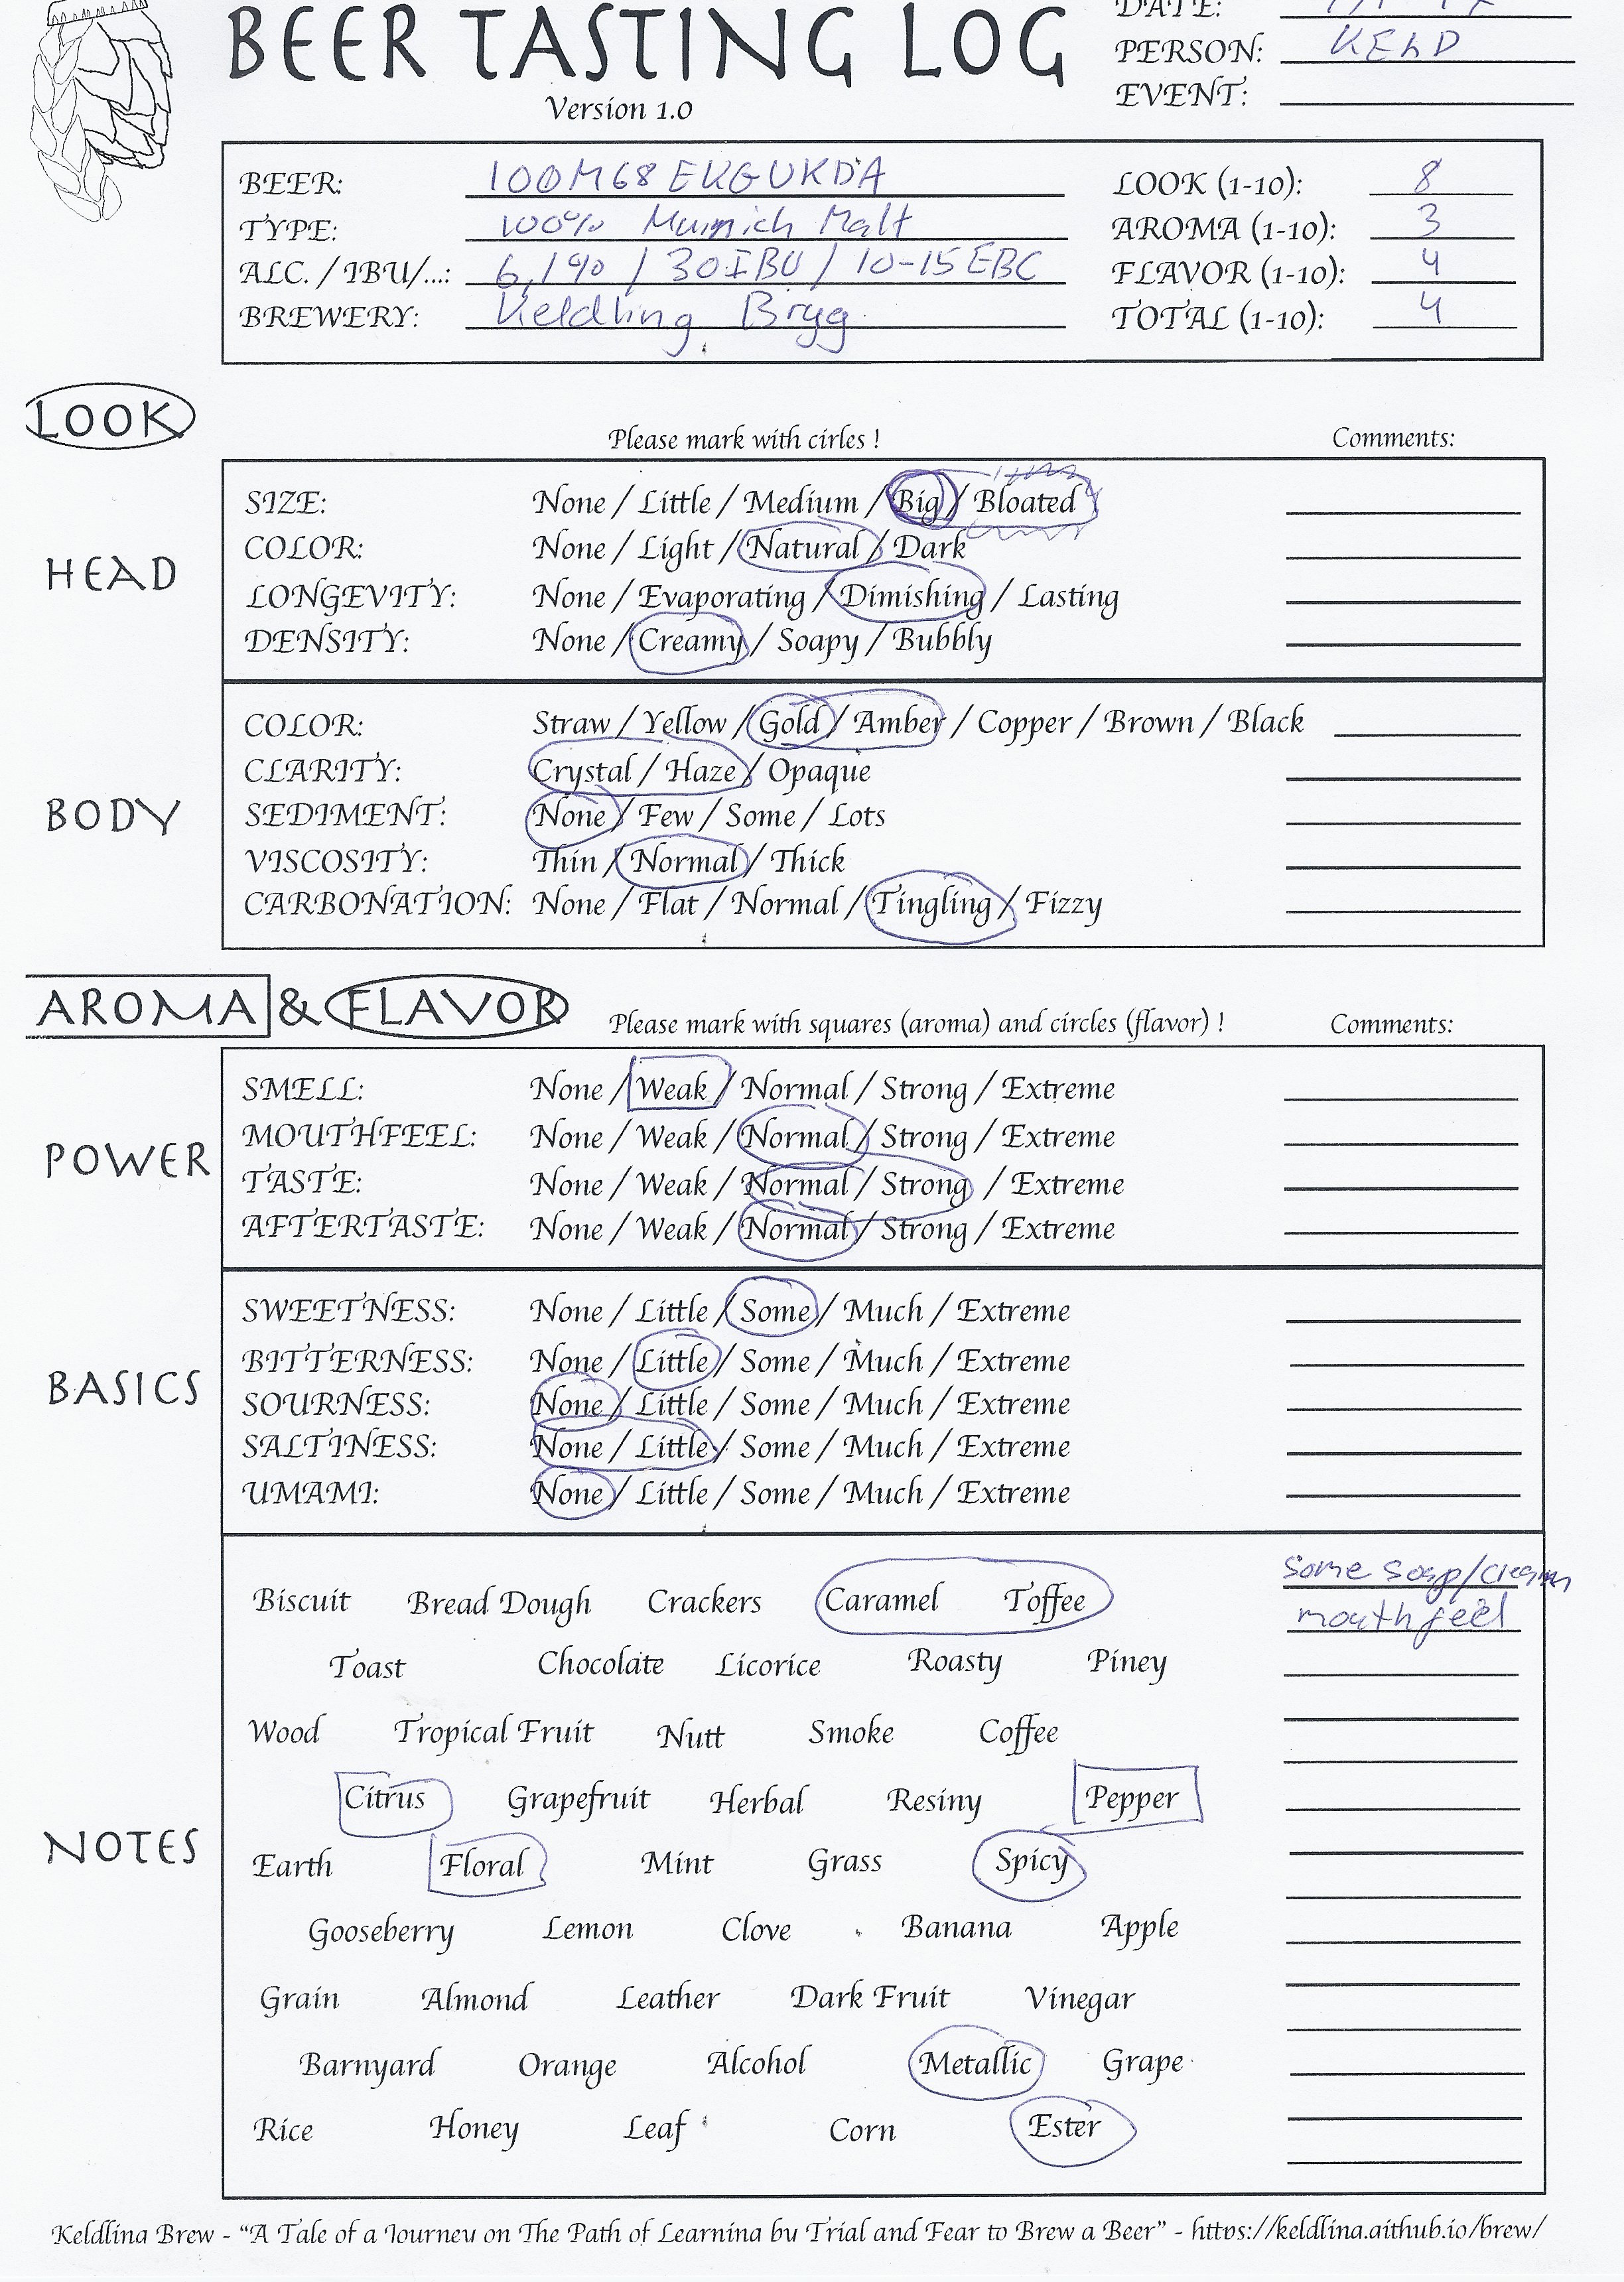 BEER TASTING LOG
DATE:
PERSON: KELD
Version 1.0
EVENT:
BEER: 100M68 EKGUKDA LOOK (1-10): 8
TYPE: 100% Munich Malt AROMA (1-10): 3
ALC. / IBU/...: 6,1% / 30IBU / 10-15EBC FLAVOR (1-10): 4
BREWERY: Keldling Bryg TOTAL (1-10): 4
LOOK
Please mark with cirles ! Comments:
HEAD
SIZE: None / Little / Medium / Big / Bloated
COLOR: None / Light / Natural / Dark
LONGEVITY: None / Evaporating / Dimishing / Lasting
DENSITY: None / Creamy / Soapy / Bubbly
BODY
COLOR: Straw / Yellow / Gold / Amber / Copper / Brown / Black
CLARITY: Crystal / Haze / Opaque
SEDIMENT: None / Few / Some / Lots
VISCOSITY: Thin / Normal / Thick
CARBONATION: None / Flat / Normal / Tingling / Fizzy
AROMA & FLAVOR
Please mark with squares (aroma) and circles (flavor) ! Comments:
POWER
SMELL: None / Weak / Normal / Strong / Extreme
MOUTHFEEL: None / Weak / Normal / Strong / Extreme
TASTE: None / Weak / Normal / Strong / Extreme
AFTERTASTE: None / Weak / Normal / Strong / Extreme
BASICS
SWEETNESS: None / Little / Some / Much / Extreme
BITTERNESS: None / Little / Some / Much / Extreme
SOURNESS: None / Little / Some / Much / Extreme
SALTINESS: None / Little / Some / Much / Extreme
UMAMI: None / Little / Some / Much / Extreme
NOTES
some soap/cream
Biscuit Bread Dough Crackers Caramel Toffee
mouthfeel
Toast Chocolate Licorice Roasty Piney
Wood Tropical Fruit Nutt Smoke Coffee
Citrus Grapefruit Herbal Resiny Pepper
Earth Floral Mint Grass Spicy
Gooseberry Lemon Clove Banana Apple
Grain Almond Leather Dark Fruit Vinegar
Barnyard Orange Alcohol Metallic Grape
Rice Honey Leaf Corn Ester
Keldling Brew - "A Tale of a Journey on The Path of Learning by Trial and Fear to Brew a Beer" - https://keldling.github.io/brew/